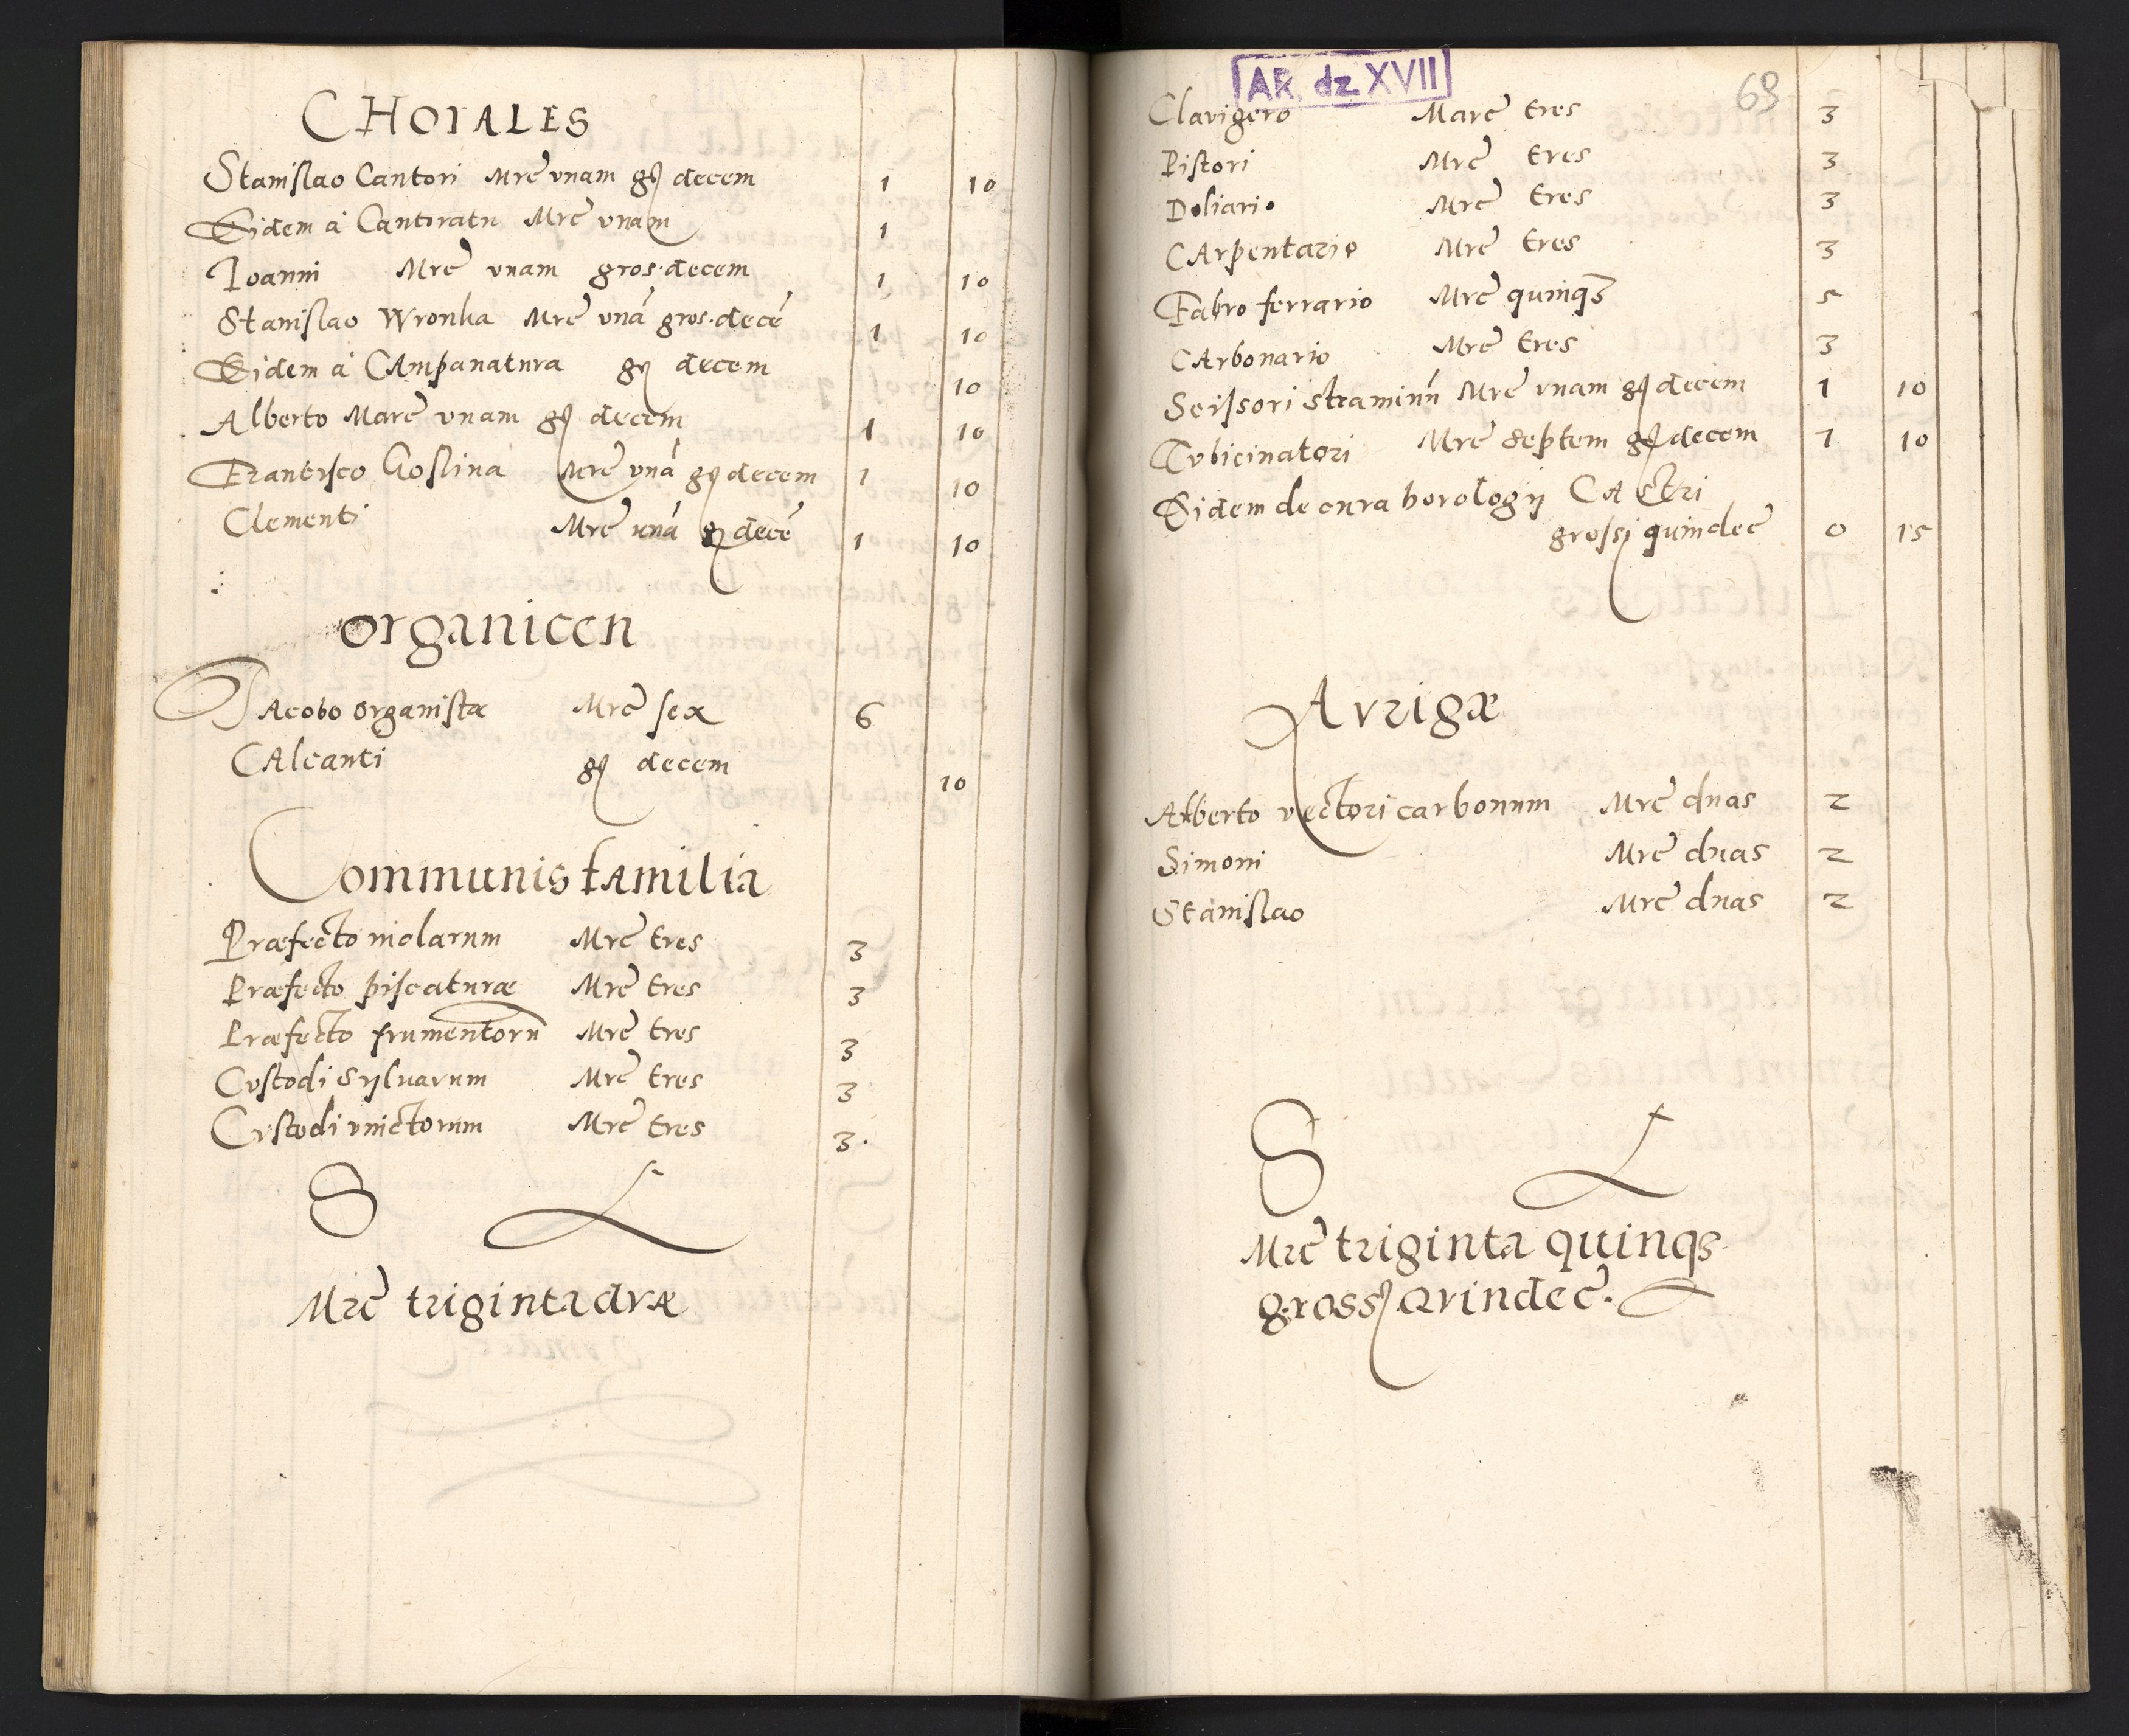 CHORALES
Stanislao Cantori Mrc̃ vnam gʒ decem 1 10
Eidem à Cantoratu Mrc̃ vnam 1
Ioanni Mrc̃ vnam gros: decem 1 10
Stanislao Wronka Mrc̃ vnã gros. decẽ 1 10
Eidem à CAmpanatura gʒ decem 10
Alberto Marc̃ vnam gʒ decem 1 10
Frantisco Goslina Mrc̃ vnã gʒ decem 1 10
Clementi Mrc̃ vnã gʒ decẽ 1 10
organicen
IAcobo organistæ Mrc̃ sex 6
CAlcanti gʒ decem 10
Communis fAmilia
Præfecto molarum Mrc̃ tres 3
Præfecto piscaturæ Mrc̃ tres 3
Præfecto frumentorũ Mrc̃ tres 3
Cvstodi sylvarum Mrc̃ tres 3
Cvstodi vinctorum Mrc̃ tres 3.
S L
Mrc̃ triginta dvæ
AR dz XVII
69
Clavigero Marc̃ tres 3
Pistori Mrc̃ tres 3
Doliario Mrc̃ tres 3
CArpentario Mrc̃ tres 3
Fabro ferrario Mrc̃ quinqʒ 5
CArbonario Mrc̃ tres 3
Scissori straminũ Mrc̃ vnam gʒ decem 1 10
Tvbicinatori Mrc̃ septem gʒ decem 7 10
Eidem de cura horologij CAstri
grossj quindec̃ 0 15
Avrigæ
Alberto vectori carbonum Mrc̃ duas 2
Simoni Mrc̃ duas 2
Stanislao Mrc̃ duas 2
S L
Mrc̃ triginta quinqʒ
grossʒ qvindec̃.